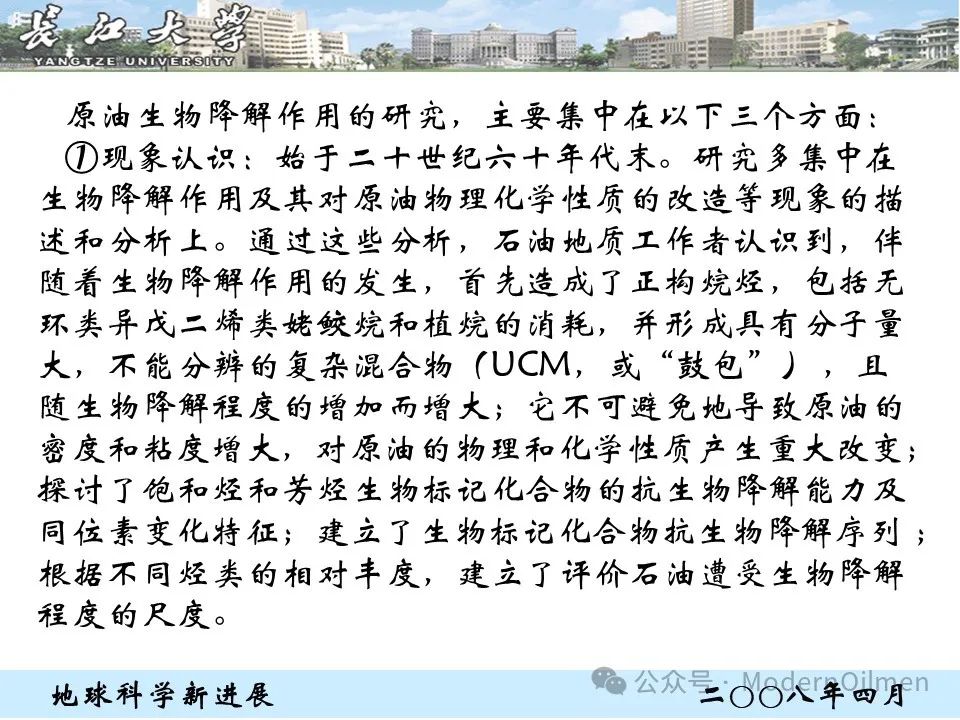 长江大学
YANGTZE UNIVERSITY
原油生物降解作用的研究，主要集中在以下三个方面：
①现象认识：始于二十世纪六十年代末。研究多集中在
生物降解作用及其对原油物理化学性质的改造等现象的描
述和分析上。通过这些分析，石油地质工作者认识到，伴
随着生物降解作用的发生，首先造成了正构烷烃，包括无
环类异戊二烯类姥鲛烷和植烷的消耗，并形成具有分子量
大，不能分辨的复杂混合物（UCM，或“鼓包”），且
随生物降解程度的增加而增大；它不可避免地导致原油的
密度和粘度增大，对原油的物理和化学性质产生重大改变；
探讨了饱和烃和芳烃生物标记化合物的抗生物降解能力及
同位素变化特征；建立了生物标记化合物抗生物降解序列；
根据不同烃类的相对丰度，建立了评价石油遭受生物降解
程度的尺度。
地球科学新进展
公众号·ModernOilmen
二〇〇八年四月